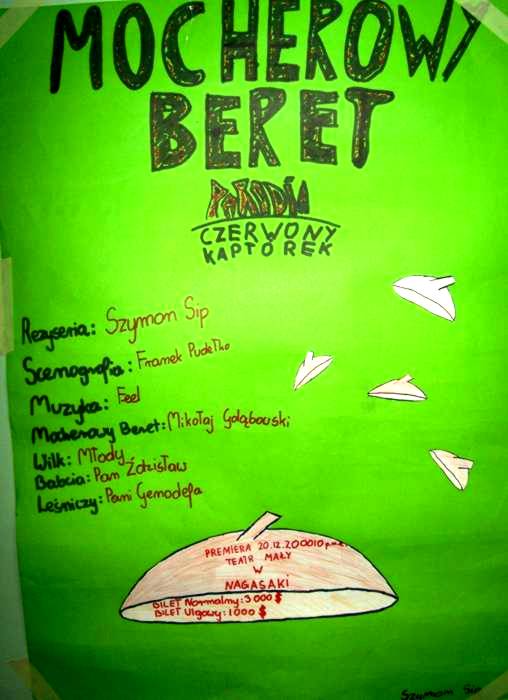 MOCHEROWY
BERET
PARODIA
CZERWONY
KAPTOREK
Reżyseria: Szymon Sip
Scenografia: Franek Pudełko
Muzyka: Feel
Mocherowy Beret: Mikołaj Gołąbowski
Wilk: Młody
Babcia: Pan Zdzisław
Leśniczy: Pani Gemodefa
PREMIERA 20.12.200010
TEATR MAŁY
W
NAGASAKI
BILET Normalny: 3 000 $
BILET Ulgowy: 1000 $
Szymon Sip